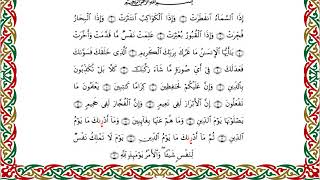 بِسْمِ ٱللَّهِ ٱلرَّحْمَٰنِ ٱلرَّحِيمِ
إِذَا ٱلسَّمَآءُ ٱنفَطَرَتْ ۝ وَإِذَا ٱلْكَوَاكِبُ ٱنتَثَرَتْ ۝ وَإِذَا ٱلْبِحَارُ
فُجِّرَتْ ۝ وَإِذَا ٱلْقُبُورُ بُعْثِرَتْ ۝ عَلِمَتْ نَفْسٌ مَّا قَدَّمَتْ وَأَخَّرَتْ
۝ يَٰٓأَيُّهَا ٱلْإِنسَٰنُ مَا غَرَّكَ بِرَبِّكَ ٱلْكَرِيمِ ۝ ٱلَّذِى خَلَقَكَ فَسَوَّىٰكَ
فَعَدَلَكَ ۝ فِىٓ أَىِّ صُورَةٍ مَّا شَآءَ رَكَّبَكَ ۝ كَلَّا بَلْ تُكَذِّبُونَ
بِٱلدِّينِ ۝ وَإِنَّ عَلَيْكُمْ لَحَٰفِظِينَ ۝ كِرَامًا كَٰتِبِينَ ۝ يَعْلَمُونَ مَا
تَفْعَلُونَ ۝ إِنَّ ٱلْأَبْرَارَ لَفِى نَعِيمٍ ۝ وَإِنَّ ٱلْفُجَّارَ لَفِى جَحِيمٍ ۝
يَصْلَوْنَهَا يَوْمَ ٱلدِّينِ ۝ وَمَا هُمْ عَنْهَا بِغَآئِبِينَ ۝ وَمَآ أَدْرَىٰكَ مَا يَوْمُ
ٱلدِّينِ ۝ ثُمَّ مَآ أَدْرَىٰكَ مَا يَوْمُ ٱلدِّينِ ۝ يَوْمَ لَا تَمْلِكُ نَفْسٌ
لِّنَفْسٍ شَيْـًٔا وَٱلْأَمْرُ يَوْمَئِذٍ لِّلَّهِ ۝